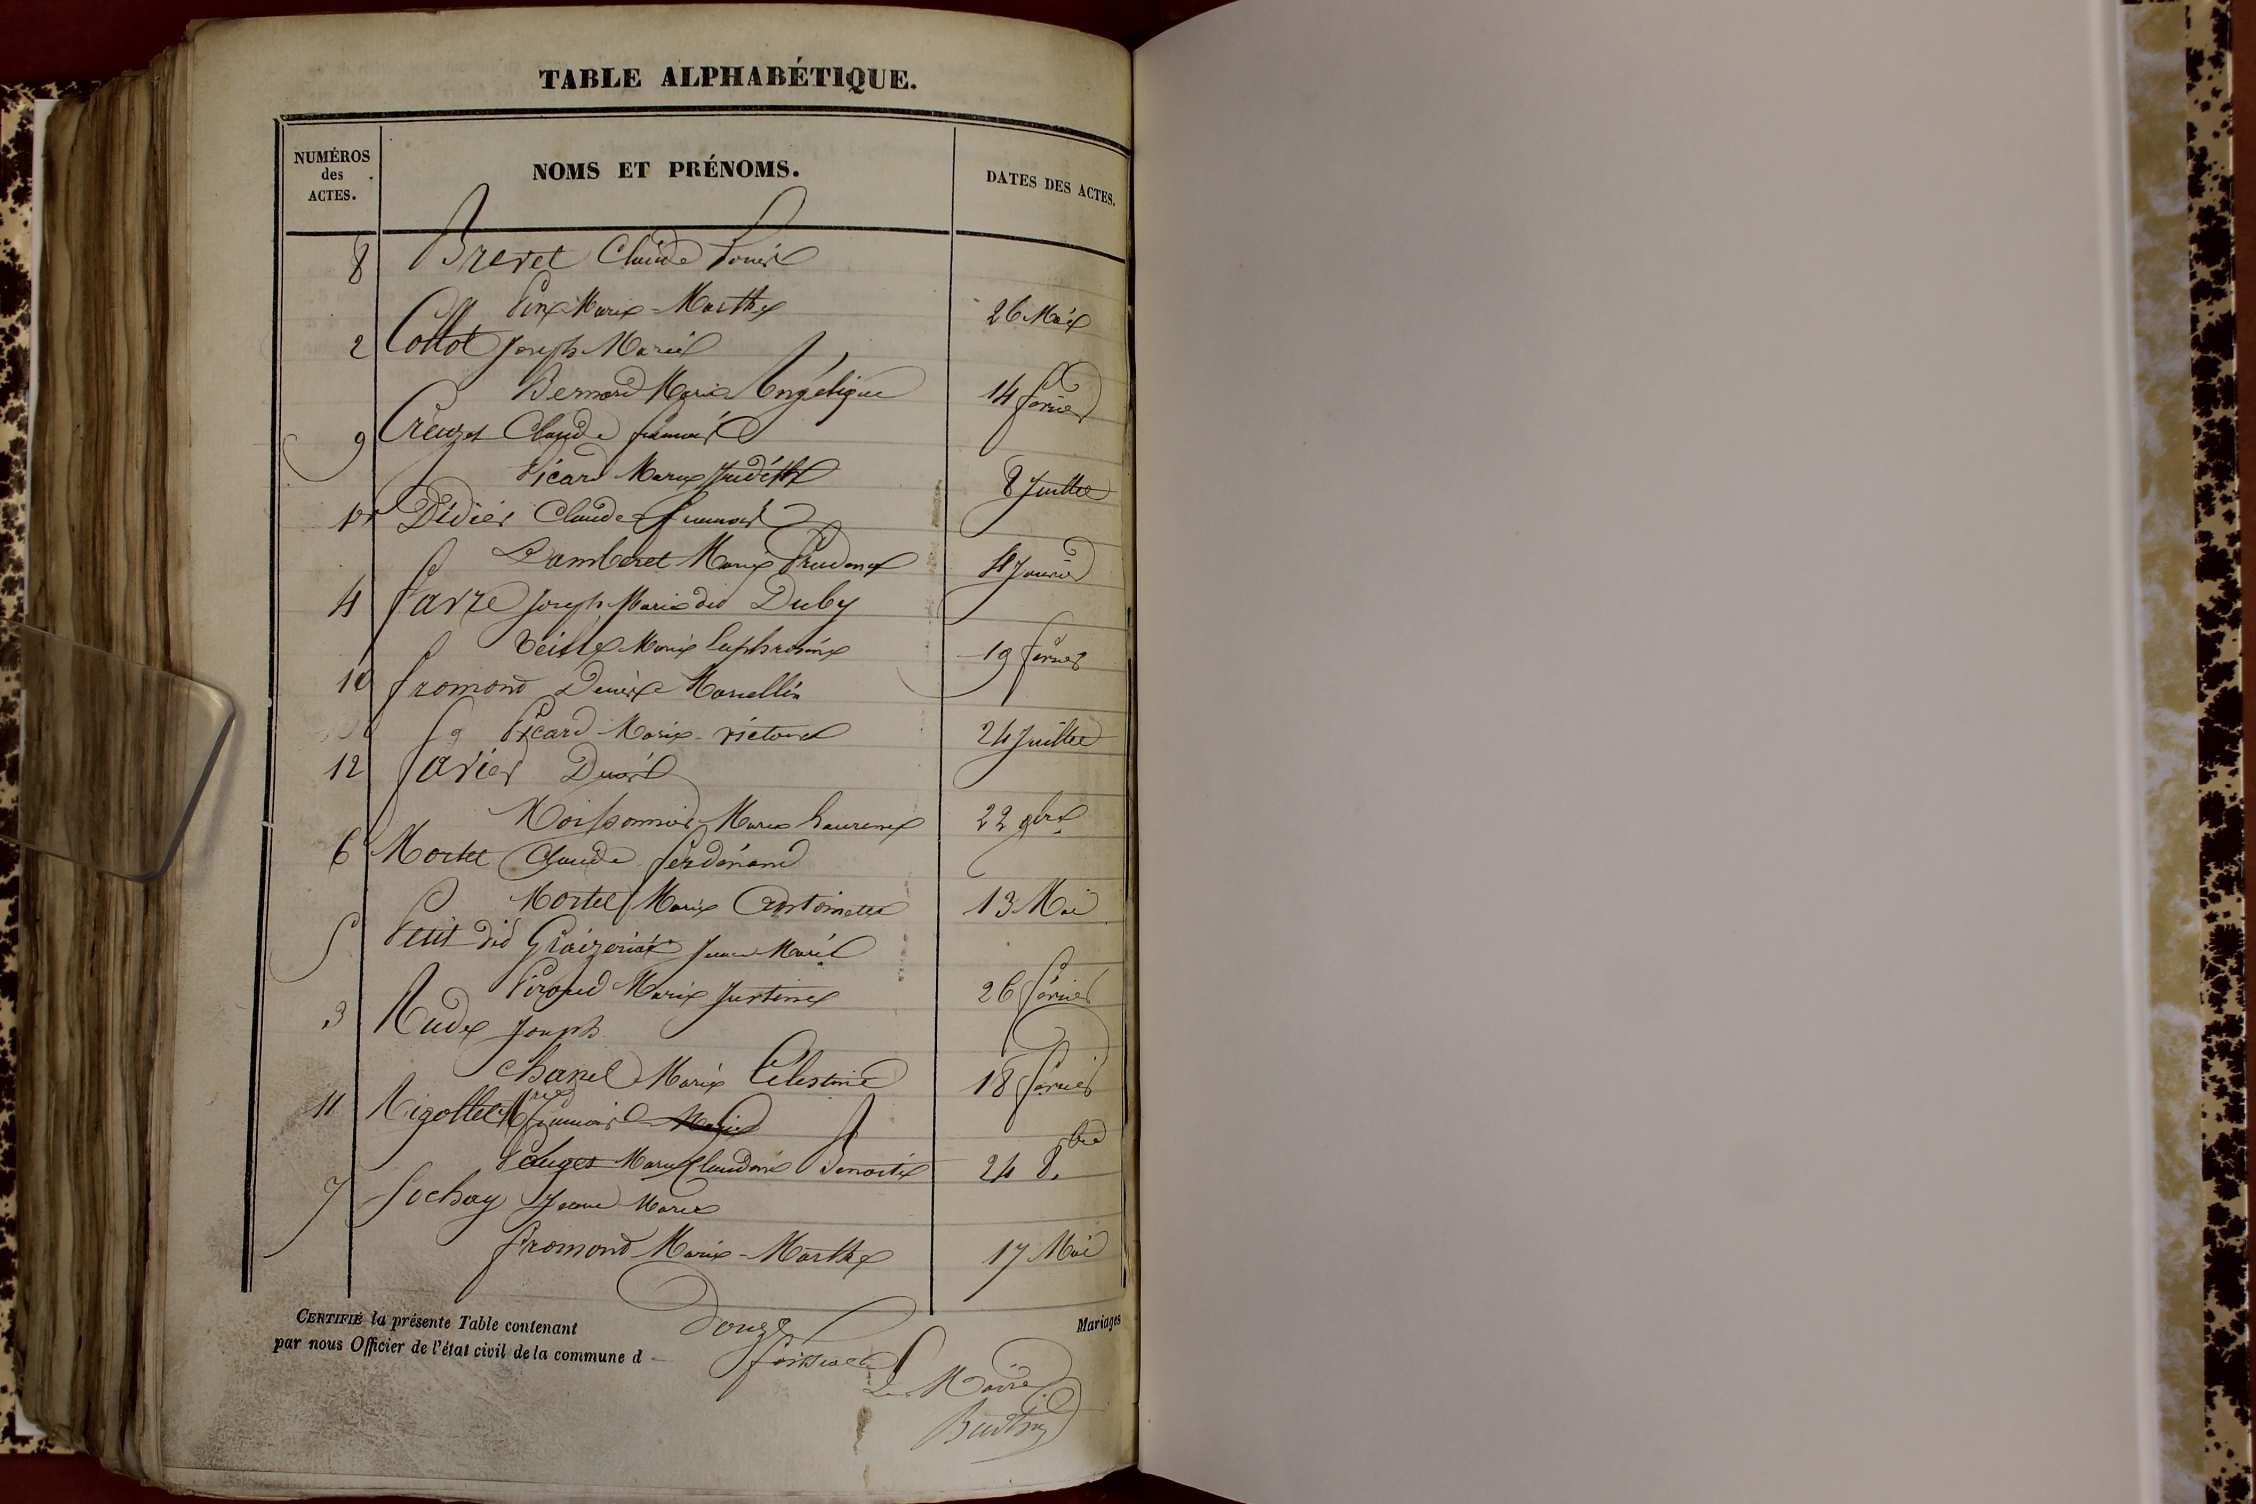 TABLE ALPHABÉTIQUE.
NUMÉROS
des
ACTES.
NOMS ET PRÉNOMS.
DATES DES ACTES.
8 Brevet Claude Louis
Marie-Marthe 26 Mai
2 Collot Joseph Marie
Bernard Marie Angélique 14 février
9 Creuzet Claude françois
Picard Marie Judith 8 Juillet
1er Didier Claude françois
Lamberet Marie Prudence Janvier
4 Joseph Marie dit Duby
Marie Euphrosine 19 février
10 fromond Denis Marcellin
Picard Marie victoire 24 Juillet
12 Javier Denis
Moissonnier Marie Laurence 22 9bre
6 Mortel Claude ferdinand
Mortel Marie Antoinette 13 Mai
5 Petit dit Graizeriat Jean Marie
Marie Justine 26 février
3 Joseph
Chanel Marie Célestine 18 février
11 Rigollet françois
Marie Claudine Benoite 24 8.bre
7 Sochay Jean Marie
fromond Marie-Marthe 17 Mai
CERTIFIÉ la présente Table contenant Douze Mariages
par nous Officier de l'état civil de la commune d
Le Maire